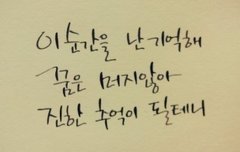 이 순간을 난 기억해
꿈은 머지않아
진한 추억이 될테니